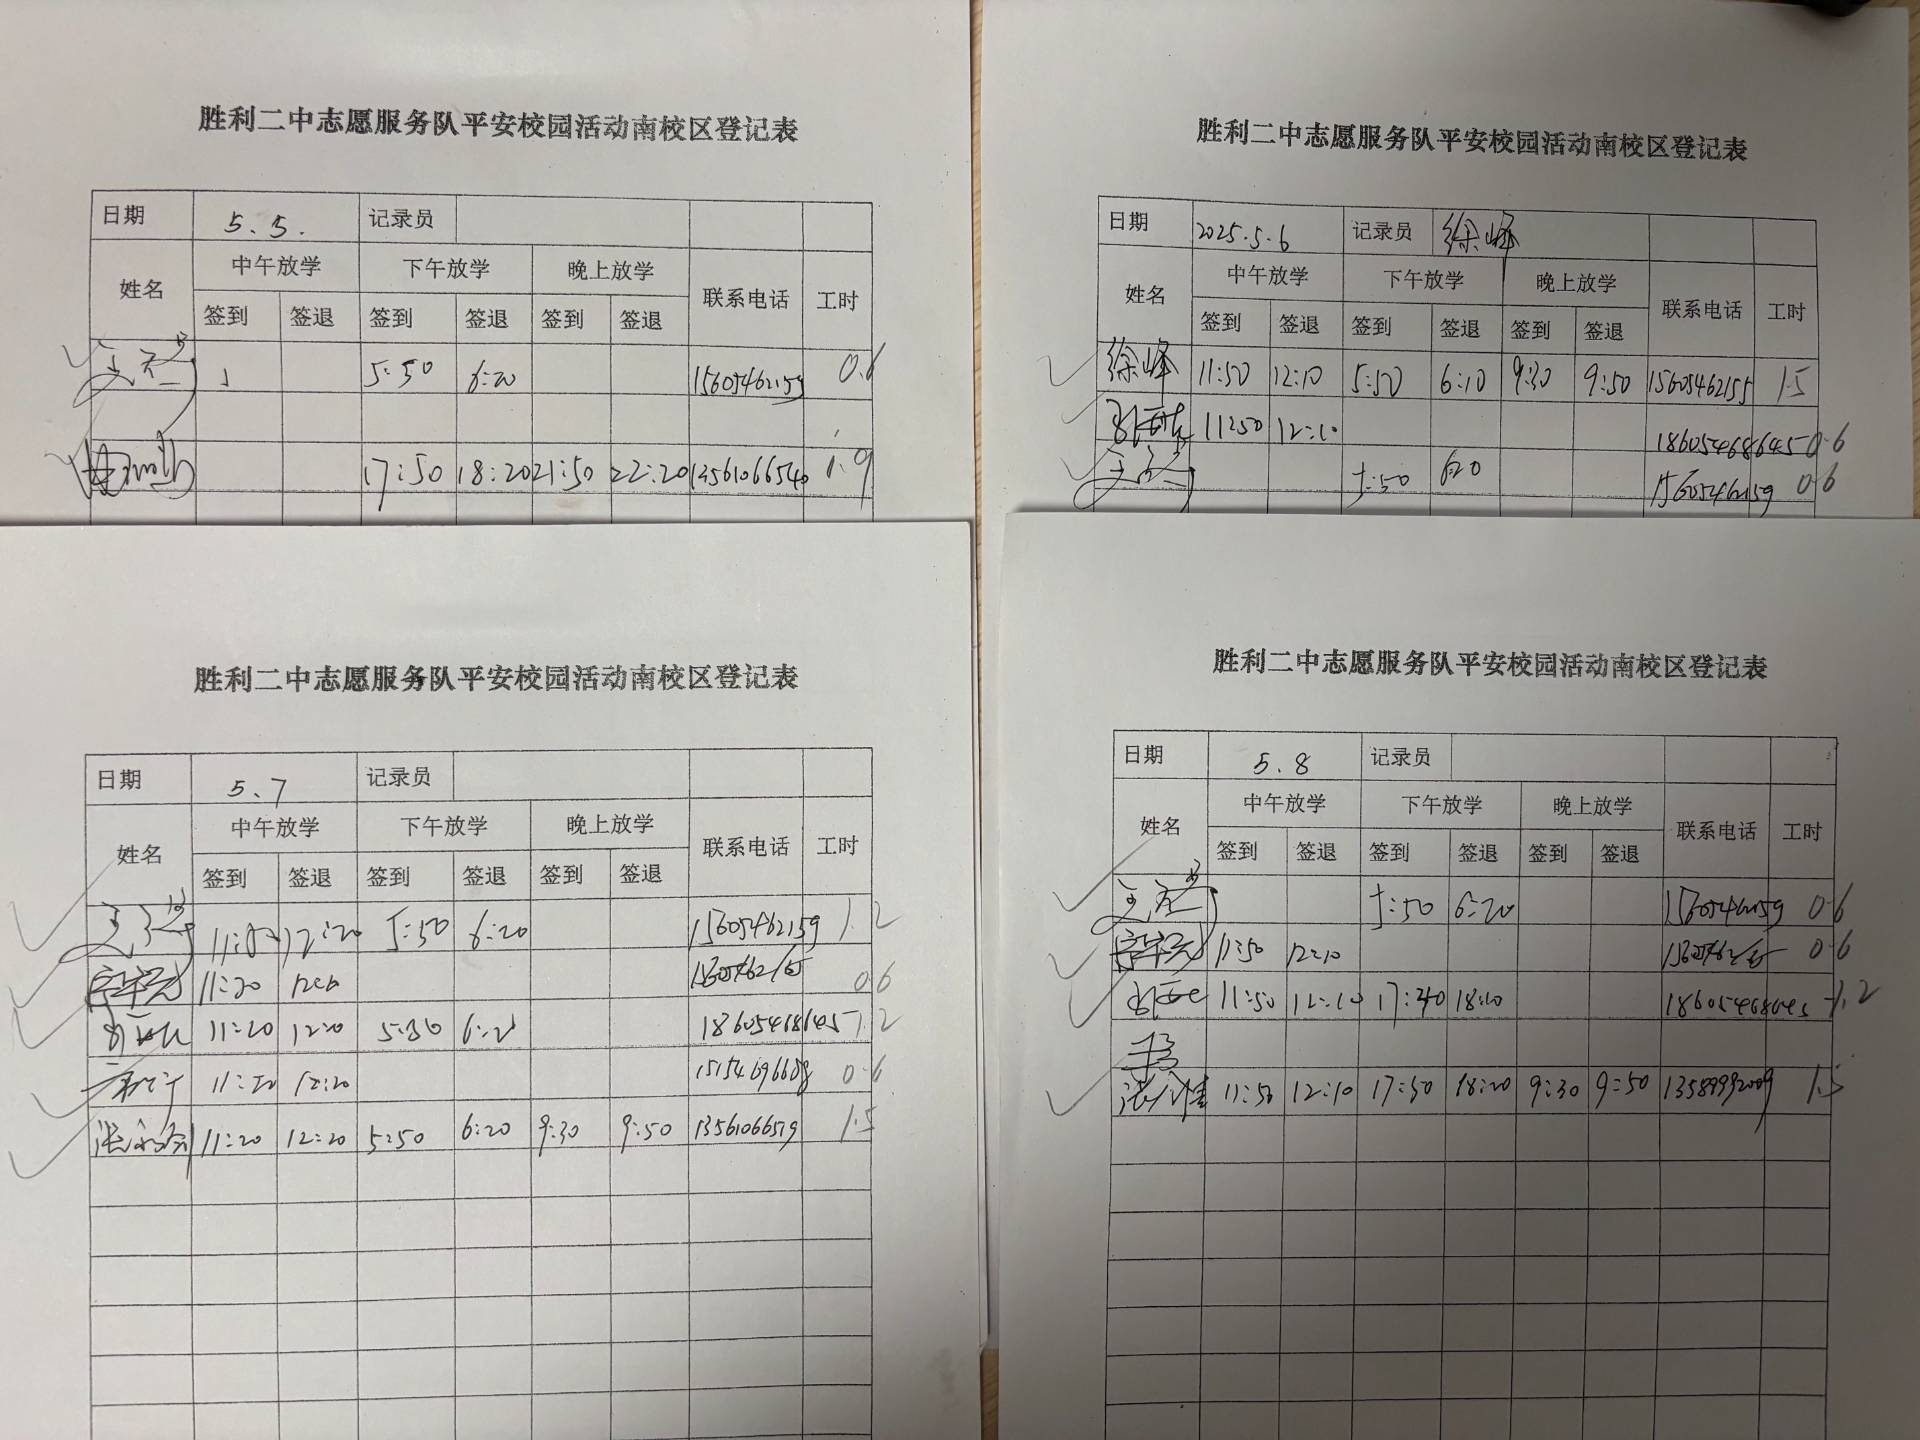 胜利二中志愿服务队平安校园活动南校区登记表
日期 5.5. 记录员
姓名 中午放学 下午放学 晚上放学 联系电话 工时
签到 签退 签到 签退 签到 签退
5:50 6:20 15605462159 0.6
17:50 18:20 21:50 22:20 13561066540 1.9
胜利二中志愿服务队平安校园活动南校区登记表
日期 2025.5.6 记录员 徐峰
姓名 中午放学 下午放学 晚上放学 联系电话 工时
签到 签退 签到 签退 签到 签退
徐峰 11:50 12:10 5:50 6:10 9:30 9:50 15605462155 1.5
11:50 12:10 18605468645 0.6
5:50 6:20 15605462159 0.6
胜利二中志愿服务队平安校园活动南校区登记表
日期 5.7 记录员
姓名 中午放学 下午放学 晚上放学 联系电话 工时
签到 签退 签到 签退 签到 签退
11:50 12:20 5:50 6:20 15605462159 1.2
11:20 0.6
11:20 12:20 5:50 18605468645 1.2
11:20 12:20 15154696608 0.6
11:20 12:20 5:50 6:20 9:30 9:50 13561066519 1.5
胜利二中志愿服务队平安校园活动南校区登记表
日期 5.8 记录员
姓名 中午放学 下午放学 晚上放学 联系电话 工时
签到 签退 签到 签退 签到 签退
5:50 6:20 15605462159 0.6
11:50 12:10 0.6
11:50 12:10 17:40 18:10 18605468645 1.2
11:50 12:10 17:50 18:20 9:30 9:50 13589992009 1.5